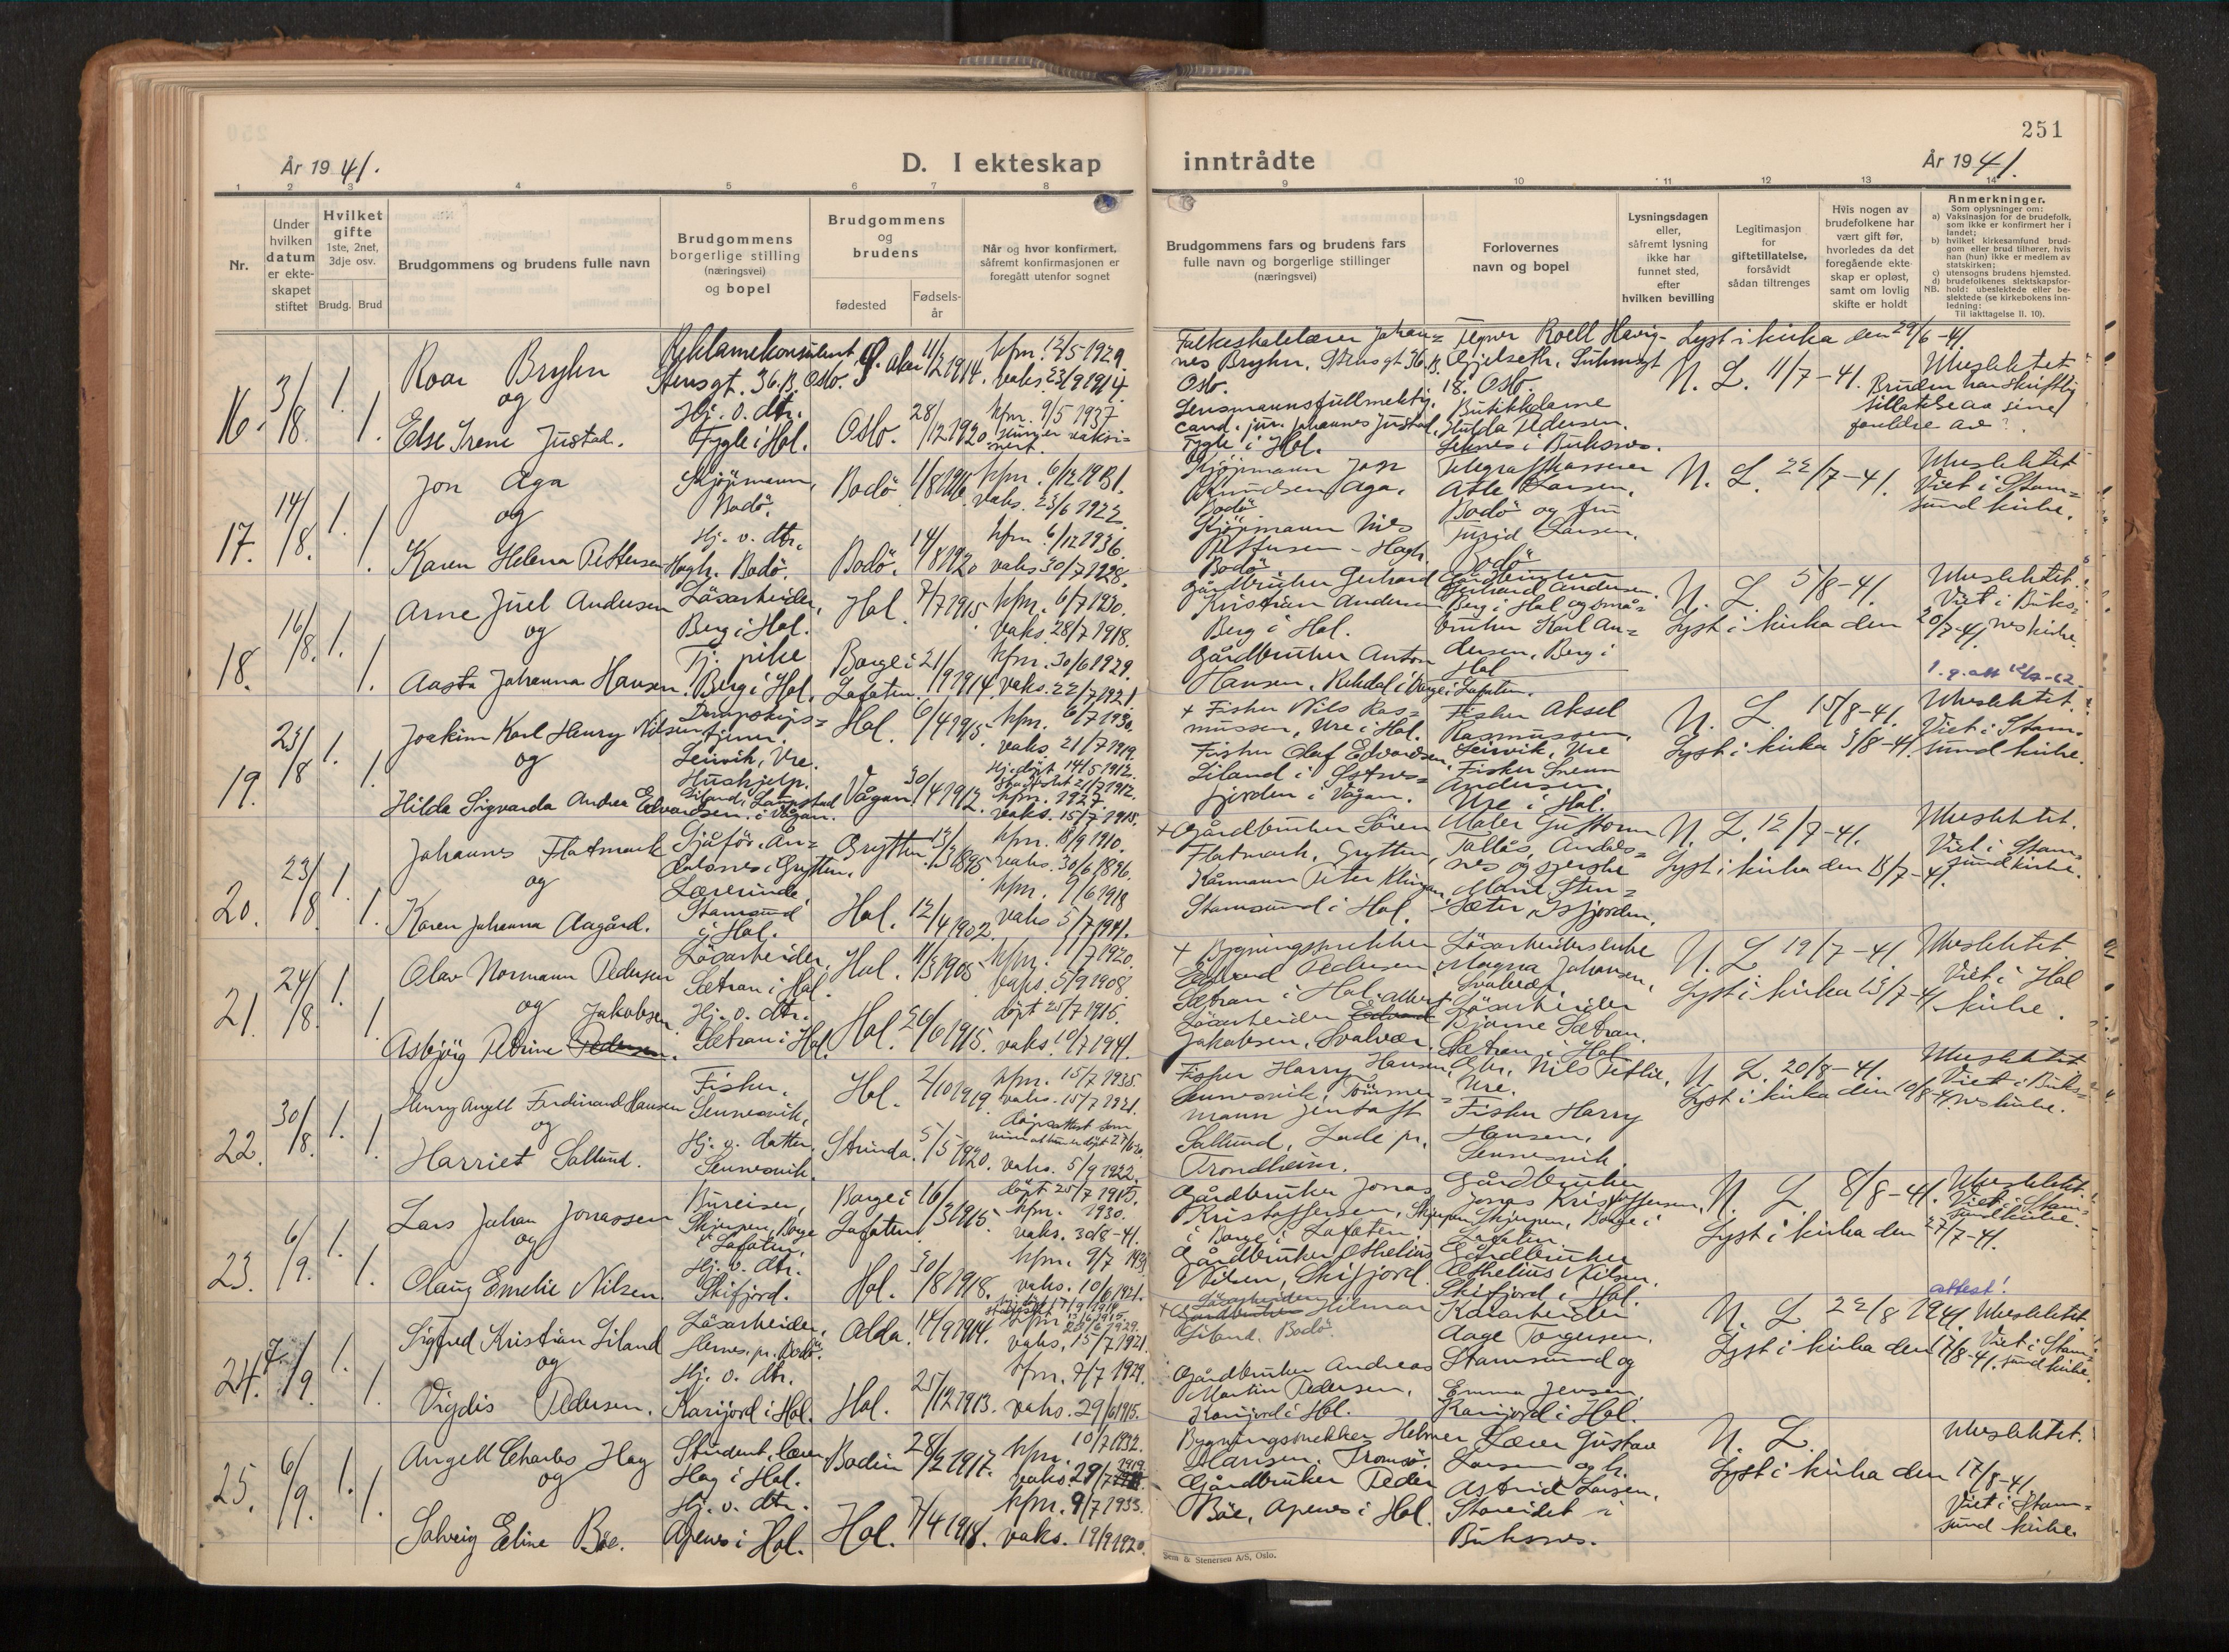 251
År 1941.
D. I ekteskap inntrådte
År 1941.
1 2 3 4 5 6 7 8 9 10 11 12 13 14
Nr.
Under hvilken datum er ekteskapet stiftet
Hvilket gifte
1ste, 2net, 3dje osv.
Brudg. Brud
Brudgommens og brudens fulle navn
Brudgommens borgerlige stilling (næringsvei) og bopel
Brudgommens og brudens
fødested
Fødselsår
Når og hvor konfirmert, såfremt konfirmasjonen er foregått utenfor sognet
Brudgommens fars og brudens fars fulle navn og borgerlige stillinger (næringsvei)
Forlovernes navn og bopel
Lysningsdagen eller, såfremt lysning ikke har funnet sted, efter hvilken bevilling
Legitimasjon for giftetillatelse, forsåvidt sådan tiltrenges
Hvis nogen av brudefolkene har vært gift før, hvorledes da det foregående ekteskap er opløst, samt om lovlig skifte er holdt
Anmerkninger.
Som oplysninger om:
a) Vaksinasjon for de brudefolk, som ikke er konfirmert her i landet;
b) hvilket kirkesamfund brudgom eller brud tilhører, hvis han (hun) ikke er medlem av statskirken;
c) utensogns brudens hjemsted.
d) brudefolkenes slektskapsforhold: ubeslektede eller beslektede (se kirkebokens innledning:
NB.
Til iakttagelse II. 10).
16. 3/8 1. 1.
Roar Bryhn
og
Else Irene Justad.
Reklamekonsulent
Stensgt. 36.B. Oslo.
Hj. v. dtr.
Fygle i Hol.
11/2 1914.
Oslo. 28/12 1920.
kfm. 12/5 1929.
vaks 23/9 1914.
kfm. 9/5 1937
nes Bryhn, Stensgt 36 B.
Oslo.
Lensmannsfullmektig,
cand. jur. Johannes Justad,
Fygle i Hol.
18. Oslo.
Butikkdame
Hulda Pedersen.
Leknes i Buksnes.
Lyst i kirka den 29/6-41.
N. L. 11/7-41.
Ubeslektet
Bruden har skriftlig
tillatelse av sine
foreldre
17. 14/8. 1. 1.
Jon Aga
og
Karen Helena Pettersen
Kjøpmann,
Bodø.
Hj. v. dtr.
Bodø.
Bodø 1/8 1916.
Bodø. 14/8 1920
kfm. 6/12 1931.
vaks. 23/6 1922.
kfm 6/12 1936.
vaks 30/7 1928.
Kjøpmann
Knudsen Aga.
Bodø
Kjøpmann Nils
Pettersen
Bodø
Telegrafkasserer
Atle Larsen,
Bodø og fru
Turid Larsen.
Bodø
N. L. 22/7-41.
Ubeslektet
Viet i Stam=
sund kirke.
18. 16/8. 1. 1.
Arne Juel Andersen
og
Aasta Johanna Hansen.
Løsarbeider,
Berg i Hol.
Tj. pike
Berg i Hol.
Hol. 7/7 1915.
Borge i Lofoten. 21/9 1914.
kfm. 6/7 1930.
vaks. 28/7 1918.
kfm. 30/6 1929.
vaks. 22/7 1921.
Gårdbruker Gerhard
Kristian Andersen
Berg i Hol.
Gårdbruker Anton
Hansen, Rekdal i Borge i Lofoten.
Gårdbruker
Gerhard Andersen.
Berg i Hol og små=
bruker Karl An=
dersen, Berg i
Hol
N. L. 5/8-41.
Lyst i kirka den 20/7-41
Ubeslektet.
Viet i Buks=
nes kirke.
19. 23/8 1. 1.
Joakim Karl Henry Nilsen
og
Hilda Sigvarda Andrea Edvardsen.
Dampskips=
Leirvik, Ure.
Hushjelp.
i Vågan.
Hol. 6/4 1915.
Vågan. 30/4 1912.
kfm. 6/7 1930.
vaks 21/7 1919.
Hj. døpt 14/5 1912.
kfm. 1927.
vaks. 15/7 1915.
+ Fisker Nils Ras=
mussen, Ure i Hol.
Fisker Olaf Edvardsen,
Liland i Østnes=
fjorden i Vågan.
Fisker Aksel
Rasmussen,
Leirvik, Ure
Fisker
Andersen,
Ure i Hol.
N. L. 15/8-41.
Lyst i kirka 3/8-41
1. g. att
Ubeslektet.
Viet i Stam=
sund kirke.
20. 23/8 1. 1.
Johannes Flatmark
og
Karen Johanna Aagård.
Sjåfør. Ån=
dalsnes i Grytten.
Lærerinde,
Stamsund
i Hol.
Grytten 12/3 1895.
Hol. 12/4 1902.
kfm. 18/9 1910.
vaks. 30/6 1896.
kfm. 9/6 1918
vaks 5/7 1941.
+ Gårdbruker Søren
Flatmark, Grytten,
Stamsund i Hol.
Maler Guttorm
Tallås, Åndals=
nes og
Marie Sten=
sæter, Isfjorden.
N. L. 12/7-41.
Lyst i kirka den 13/7-41.
Ubeslektet.
Viet i Stam=
sund kirke.
21. 24/8. 1. 1.
Olav Normann Pedersen
og Jakobsen
Asbjörg Petrine Pedersen.
Løsarbeider.
Sætran i Hol.
Hj. v. dtr.
Sætran i Hol.
Hol. 11/3 1905
Hol. 26/6 1915.
kfm. 11/7 1920.
vaks. 5/9 1908.
døpt 25/7 1915.
vaks. 10/7 1941.
+ Bygningssnekker
Edvard Pedersen
Sætran i Hol. Albert
Løsarbeider Edvard
Jakobsen, Svolvær.
Løsarbeiderske
Magna Johansen,
Svolvær,
Løsarbeider
Bjarne Sætran.
Sætran i Hol.
N. L 19/7-41.
Lyst i kirka 13/7-41.
Ubeslektet
Viet i Hol
kirke.
22. 30/8. 1. 1.
Henry Angell Ferdinand Hansen
og
Harriet Sollund.
Fisker.
Sennesvik.
Hj. v. datter
Sennesvik.
Hol. 2/10 1919
Strinda. 5/5 1920.
kfm. 15/7 1935.
vaks. 15/7 1921.
vaks. 5/9 1922.
Fisker Harry Hansen,
Sennesvik, Tømmer=
mann Jentoft
Sollund, Lade pr.
Trondheim.
Ure.
Fisker Harry
Hansen,
Sennesvik.
N. L. 20/8-41.
Lyst i kirka den 10/8-41
Ubeslektet
Viet i Buks=
nes kirke.
23. 6/9. 1. 1.
Lars Johan Jonassen
og
Olaug Emelie Nilsen.
Bureiser,
Skjerpen, Borge
i Lofoten.
Hj. v. dtr.
Skifjord.
Borge i Lofoten. 16/3 1915.
Hol. 30/8 1918.
døpt 25/7 1915.
kfm. 1930.
vaks. 30/8-41.
kfm. 9/7 1933
vaks. 10/6 1921.
Gårdbruker Jonas
Kristoffersen, Skjerpen
i Borge i Lofoten.
Gårdbruker Othelius
Nilsen, Skifjord
Gårdbruker
Jonas Kristoffersen,
Skjerpen, Borge i
Lofoten
Gårdbruker
Othelius Nilsen.
Skifjord i Hol.
N. L. 8/8-41.
Lyst i kirka den 27/7-41.
Ubeslektet.
Viet i Stam=
sund kirke.
24. 7/9 1. 1.
Sigfred Kristian Liland
og
Vigdis Pedersen.
Løsarbeider,
Hernes pr. Bodø.
Hj. v. dtr.
Karijord i Hol.
14/9 1914.
Hol. 25/12 1913.
vaks. 15/7 1921.
kfm. 7/7 1929.
vaks. 29/6 1915.
+ Løsarbeider
Gårdbruker Hilmar
Liland. Bodø.
Gårdbruker Andreas
Martin Pedersen,
Karijord i Hol.
Kaiarbeider
Aage Torgersen.
Stamsund og
Emma Jensen,
Karijord i Hol.
N. L 22/8 1941.
Lyst i kirka den 17/8-41.
attest!
Ubeslektet.
Viet i Stam=
sund kirke.
25. 6/9. 1. 1.
Angell Charles Hag
og
Solveig Eline Böe.
Student, lærer
Hag i Hol.
Hj. v. dtr.
Apenes i Hol.
Bodin 28/2 1917.
Hol. 7/4 1918.
kfm. 10/7 1932.
vaks. 29/7 1919
kfm. 9/7 1933.
vaks. 19/9 1920.
Bygningssnekker Helmer
Tromsø.
Gårdbruker Peder
Böe, Apenes i Hol.
Lærer Gustav
Larsen og fr.
Astrid Larsen,
Storeidet i
Buksnes.
N. L.
Lyst i kirka den 17/8-41
Ubeslektet.
Viet i Stam=
sund kirke.
Sem & Stenersen A/S, Oslo.